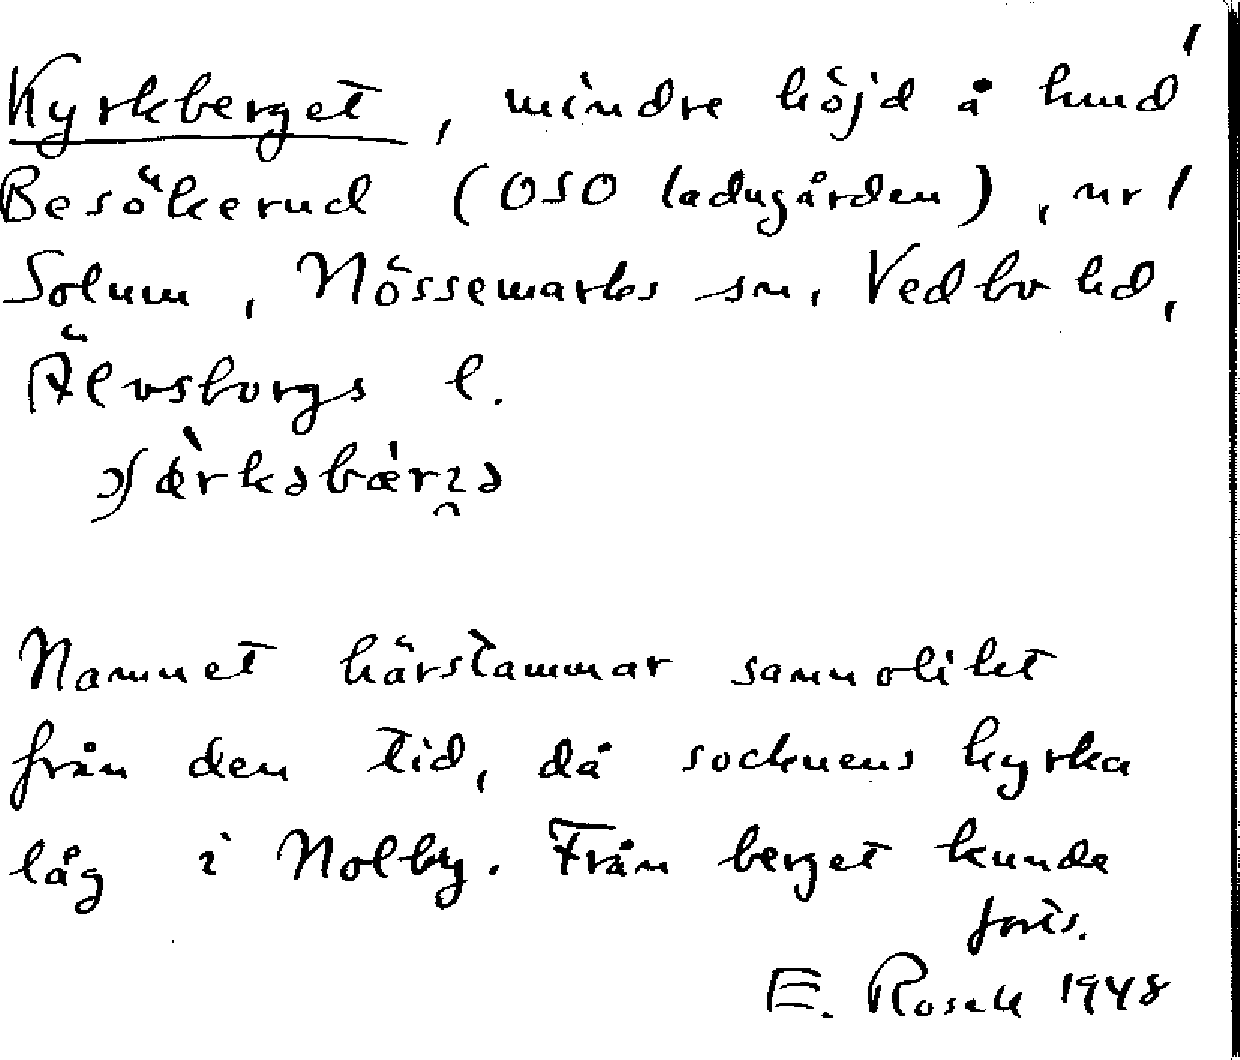 1
Kyrkberget, mindre höjd å hmd
Besökerud (OSO ladugården), nr 1
Solum, Nössemarks sn, Vedbo hd,
Älvsborgs l.
Namnet härstammar sannolikt
från den tid, då socknens kyrka
låg i Nolby. Från berget kunde
forts.
E. Rosell 1948